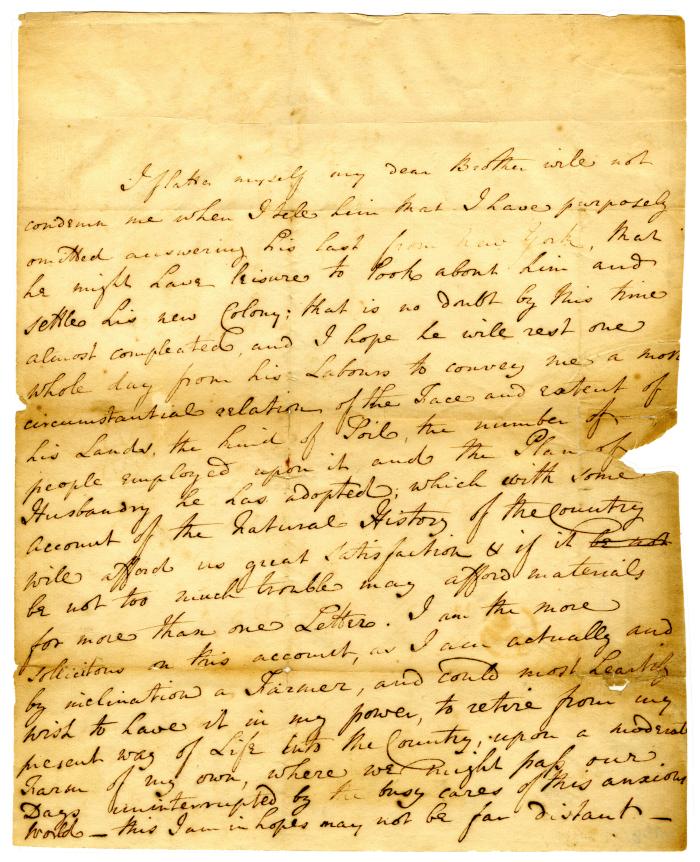 I flatter myself my dear Brother will not
condemn me when I tell him that I have purposely
omitted answering his last from New York, that
he might have leisure to look about him and
settle his new Colony; that is no doubt by this time
almost compleated, and I hope he will rest one
whole day from his Labours to convey me a more
circumstantial relation of the Face and extent of
his Lands, the kind of Soil, the number of
people employed upon it and the Plan of
Husbandry he has adopted; which with some
account of the Natural History of the Country
will afford us great Satisfaction & if it be not
be not too much trouble may afford materials
for more than one Letter. I am the more
sollicitous on this account, as I am actually and
by inclination a Farmer, and could most heartily
wish to have it in my power, to retire from my
present way of Life into the Country, upon a moderate
Farm of my own, where we might pass our
Days uninterrupted by the busy cares of this anxious
World — this I am in hopes may not be far distant —